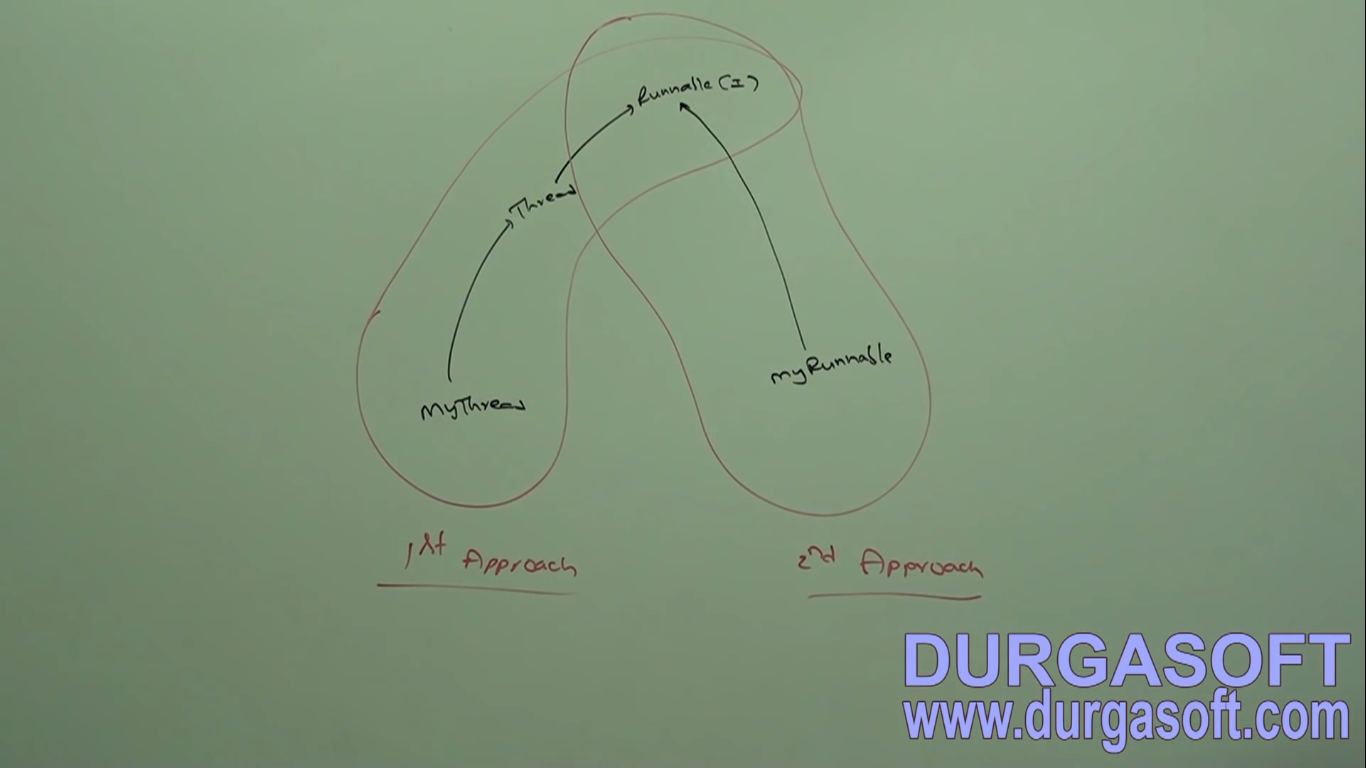 Runnable (I)
Thread
MyThread
myRunnable
1st Approach
2nd Approach
DURGASOFT
www.durgasoft.com